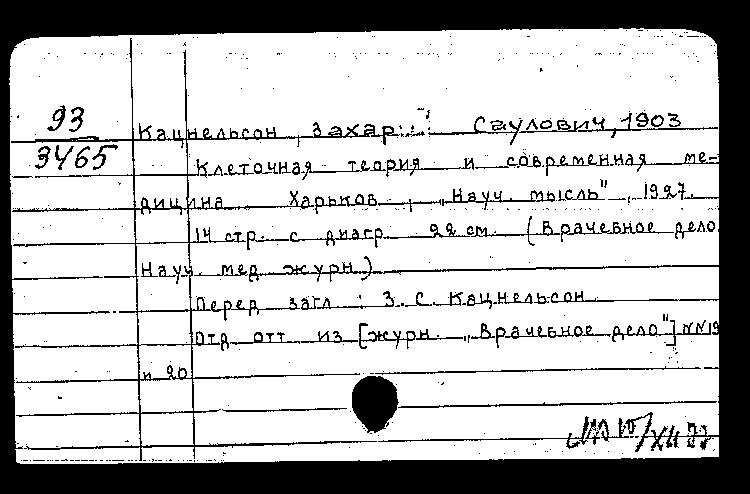 93
3465
Кацнельсон, Захар Саулович, 1903
Клеточная теория и современная ме-
дицина. Харьков, „Науч. мысль", 1927.
14 стр. с диагр. 22 см. (Врачебное дело.
Науч. мед. журн.)
Перед загл.: З. С. Кацнельсон
Отд. отт. из [журн. „Врачебное дело"] NN19
и 20